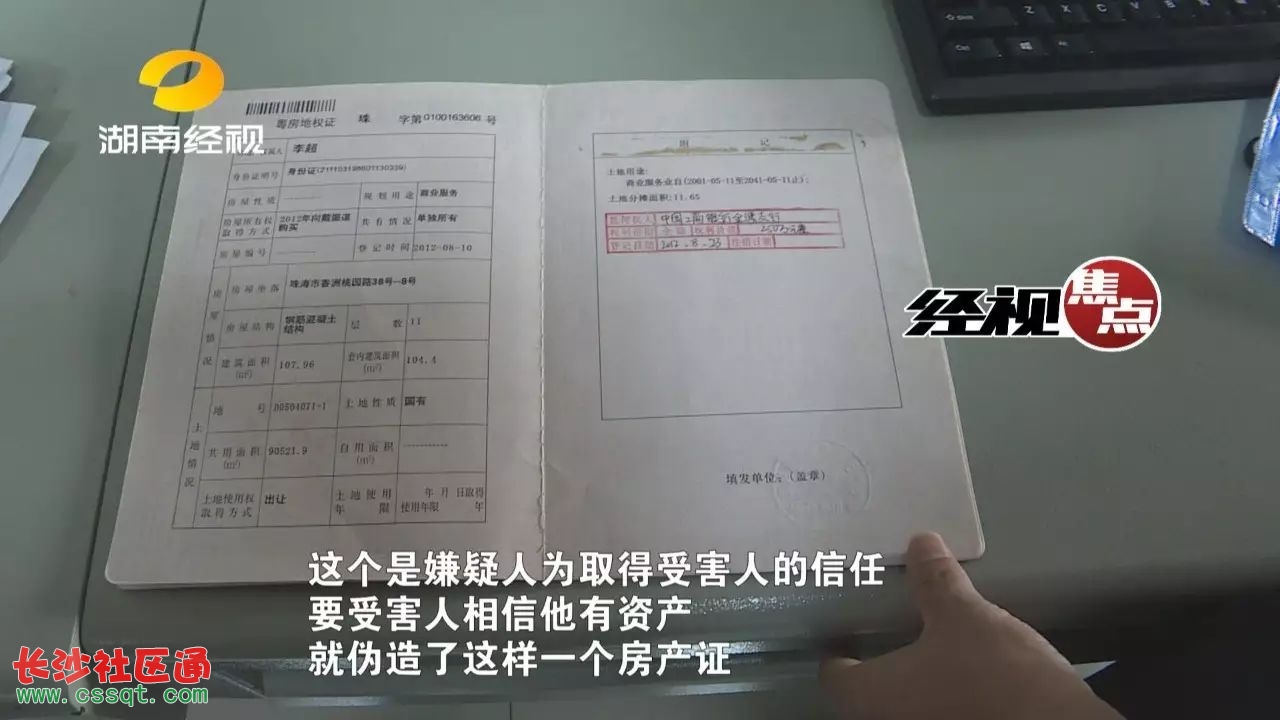 湖南经视
粤房地权证 珠 字第0100163606号
李超
身份证明号 身份证(211103198601130339)
房屋性质 ---------- 规划用途 商业服务
房屋所有权取得方式 2012年向戴振谋购买 共有情况 单独所有
房屋编号 ---------- 登记时间 2012-08-10
房屋情况
房屋坐落 珠海市香洲桃园路38号--8号
房屋结构 钢筋混凝土结构 层数 11
建筑面积(m²) 107.96 套内建筑面积(m²) 104.4
土地情况
地号 D0504071-1 土地性质 国有
共用面积(m²) 90521.9 自用面积(m²) ----------
土地使用权取得方式 出让 土地使用年限 年 月 日取得 使用年限 年
附 记
土地用途:
商业服务业自(2001-05-11至2041-05-11止);
土地分摊面积:11.65
中国工商银行
登记日期 2012.8.23 注销日期
填发单位:(盖章)
经视焦点
Shift Z X C V
Ctrl Alt
这个是嫌疑人为取得受害人的信任
要受害人相信他有资产
就伪造了这样一个房产证
长沙社区通
www.cssqt.com